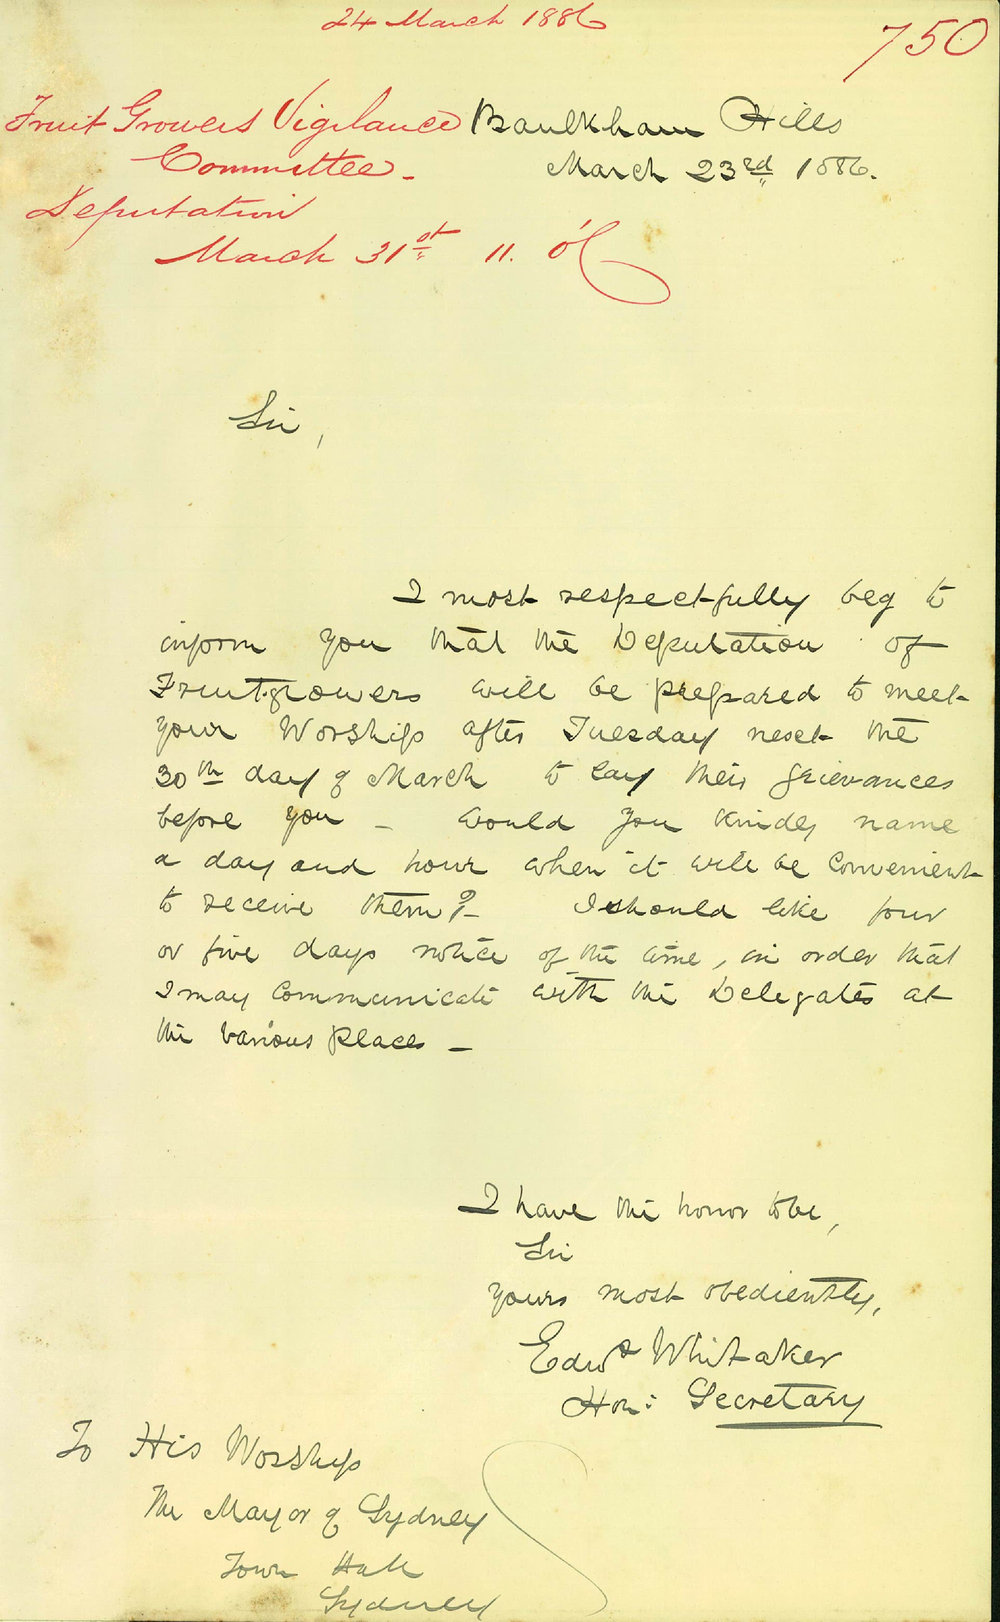 24 March 1886
750
Fruit Growers Vigilance
Committee -
Deputation
March 31st 11. o'C
Baulkham Hills
March 23rd 1886.
Sir,
I most respectfully beg to
inform you that the Deputation of
Fruitgrowers will be prepared to meet
your Worship after Tuesday next the
30th day of March to lay their grievances
before you - Would you kindly name
a day and hour when it will be convenient
to receive them? - I should like four
or five days notice of the time, in order that
I may communicate with the Delegates at
the various places -
I have the honor to be,
Sir
Yours most obediently,
Edwd Whitaker
Hon: Secretary
To His Worship
The Mayor of Sydney
Town Hall
Sydney